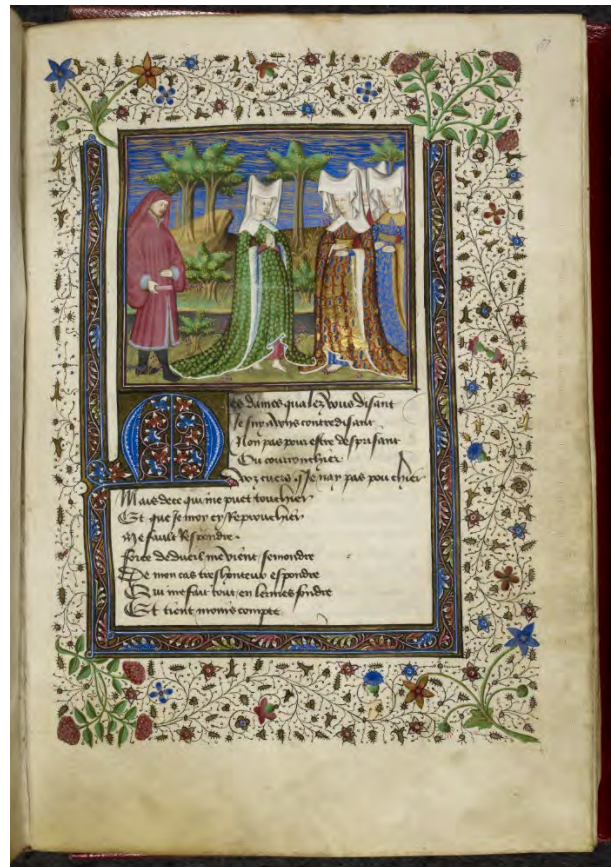 Mes dames qualez vous disant
Je suy a vous contredisant
Non pas pour estre desprisant
Ou courrouchier
Voz cuers q Je nay pas pou chier
Mais de ce qui me puet touchier
Et que Je moy cy Reprouchier
Me fault Respondre
force de dueil me vient semondre
De mon cas treshonteux espondre
Qui me fait tout en lermes fondre
Et tient moins compte